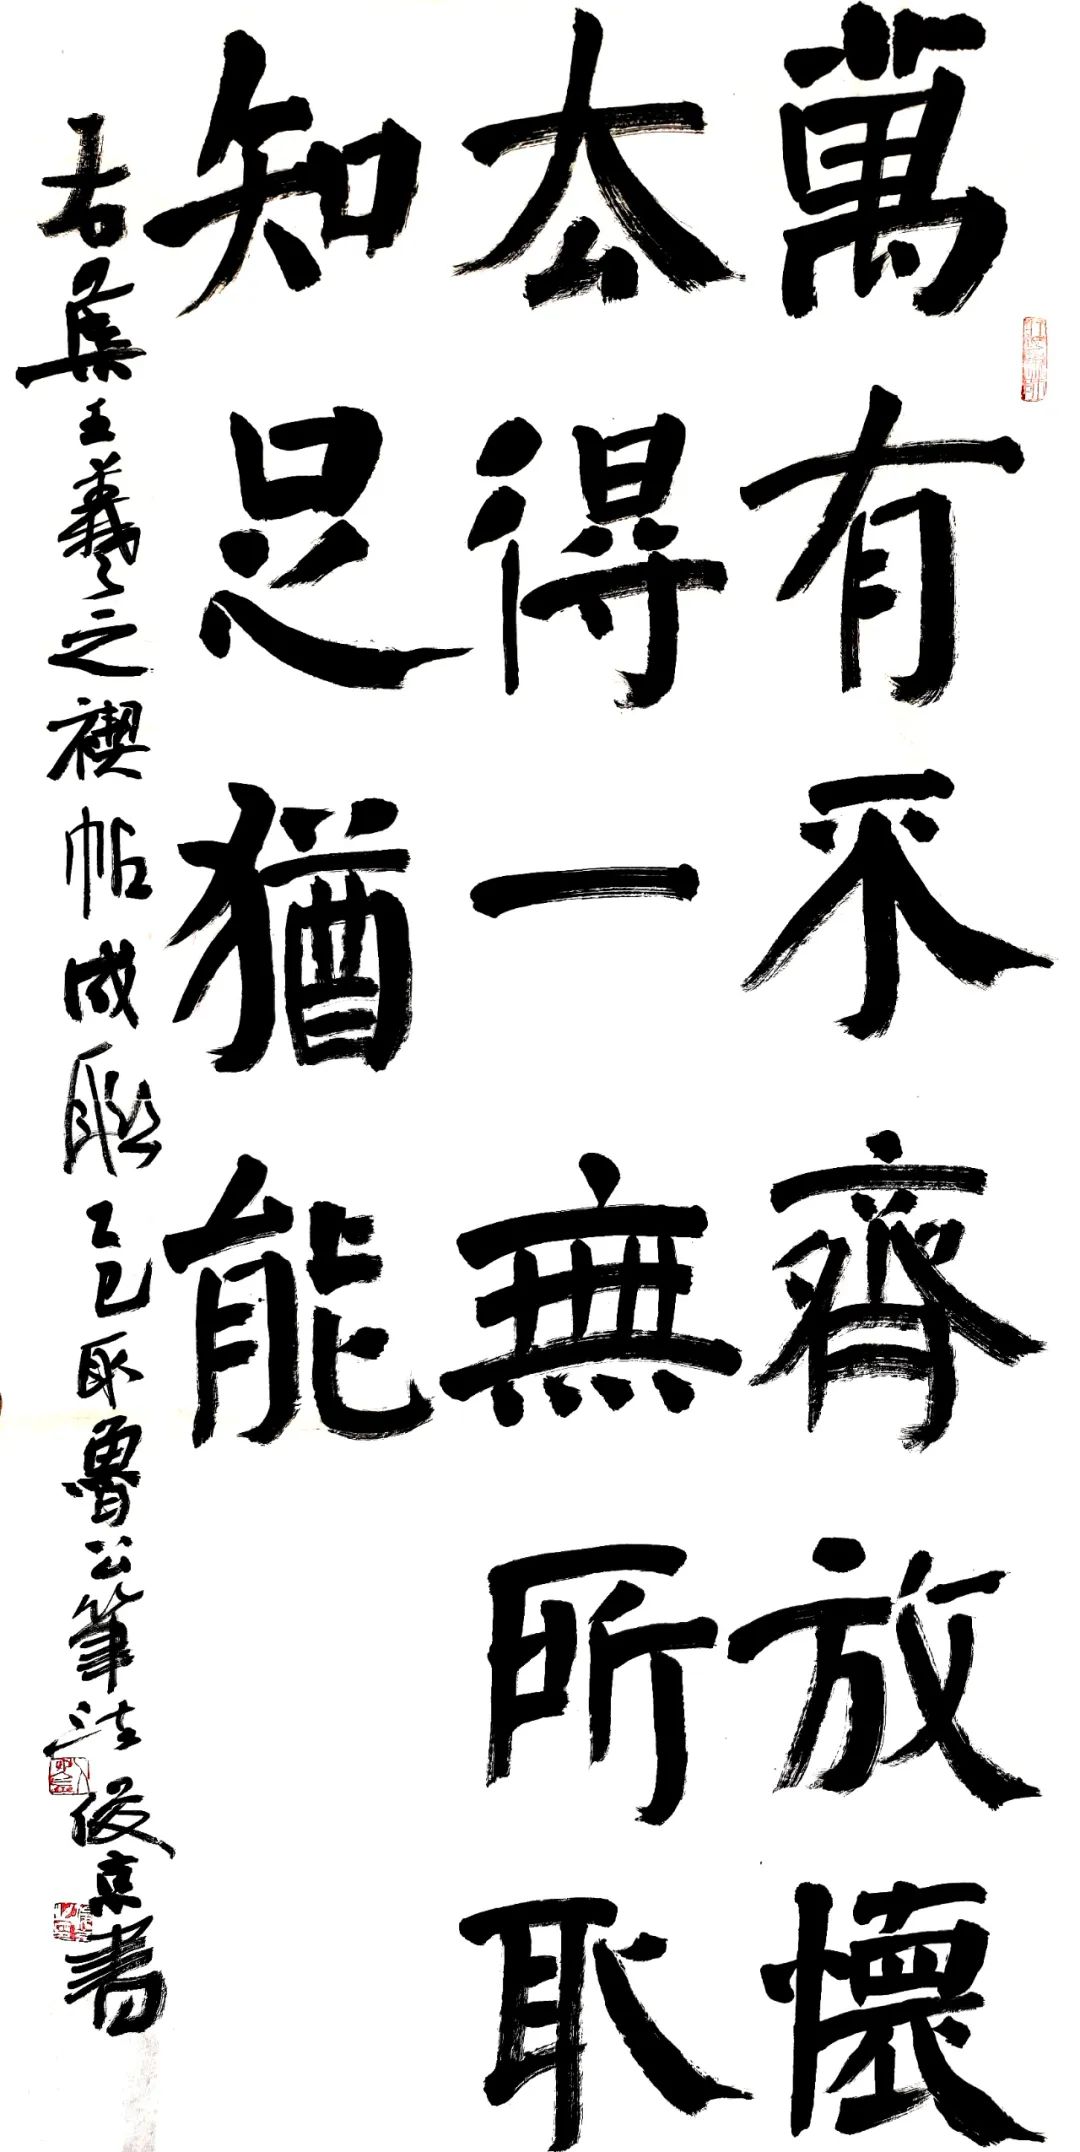 萬有不齊放懷
太得一無所取
知足猶能
右集王羲之禊帖成聯乙巳取魯公筆法俊京書